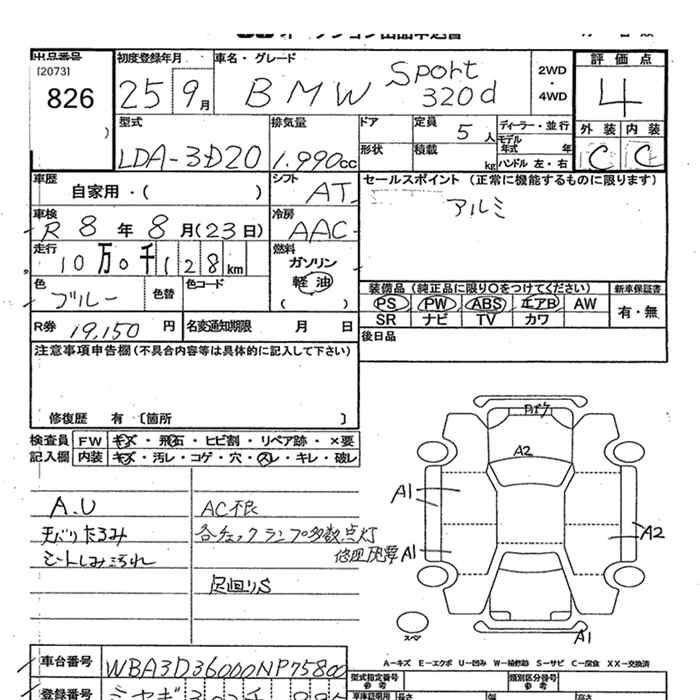 出品番号
[2073]
826
初度登録年月
25 9月
車名・グレード
BMW Sport 320d
2WD
・
4WD
評価点
4
外装 内装
C C
型式
LDA-3D20
排気量
1.990cc
ドア
定員
5人
ディーラー・並行
形状
積載
kg
モデル年式 年
ハンドル 左・右
車歴
自家用・( )
シフト
AT
セールスポイント (正常に機能するものに限ります)
アルミ
車検
R8年8月(23日)
冷房
AAC
走行
10万0千128km
燃料
ガソリン
軽油
( )
色
ブルー
色替
色コード
装備品 (純正品に限り○をつけてください)
新車保証書
PS PW ABS エアB AW
有・無
SR ナビ TV カワ
R券 19,150円
名変通知期限 月 日
後日品
注意事項申告欄 (不具合内容等は具体的に記入して下さい)
修復歴 有 〔箇所 〕
検査員
記入欄
FW キズ・飛石・ヒビ割・リペア跡・×要
内装 キズ・汚レ・コゲ・穴・スレ・キレ・破レ
A.U
天バリたるみ
シートしみ汚れ
AC不良
各チェックランプ多数点灯
足回りS
A2
A1
A1
A2
A1
スペア
A-キズ E-エクボ U-凹み W-補修跡 S-サビ C-腐食 XX-交換済
車台番号
WBA3D36000NP75800
登録番号
型式指定番号
参考
類別区分番号
参考
長さ
幅
高さ